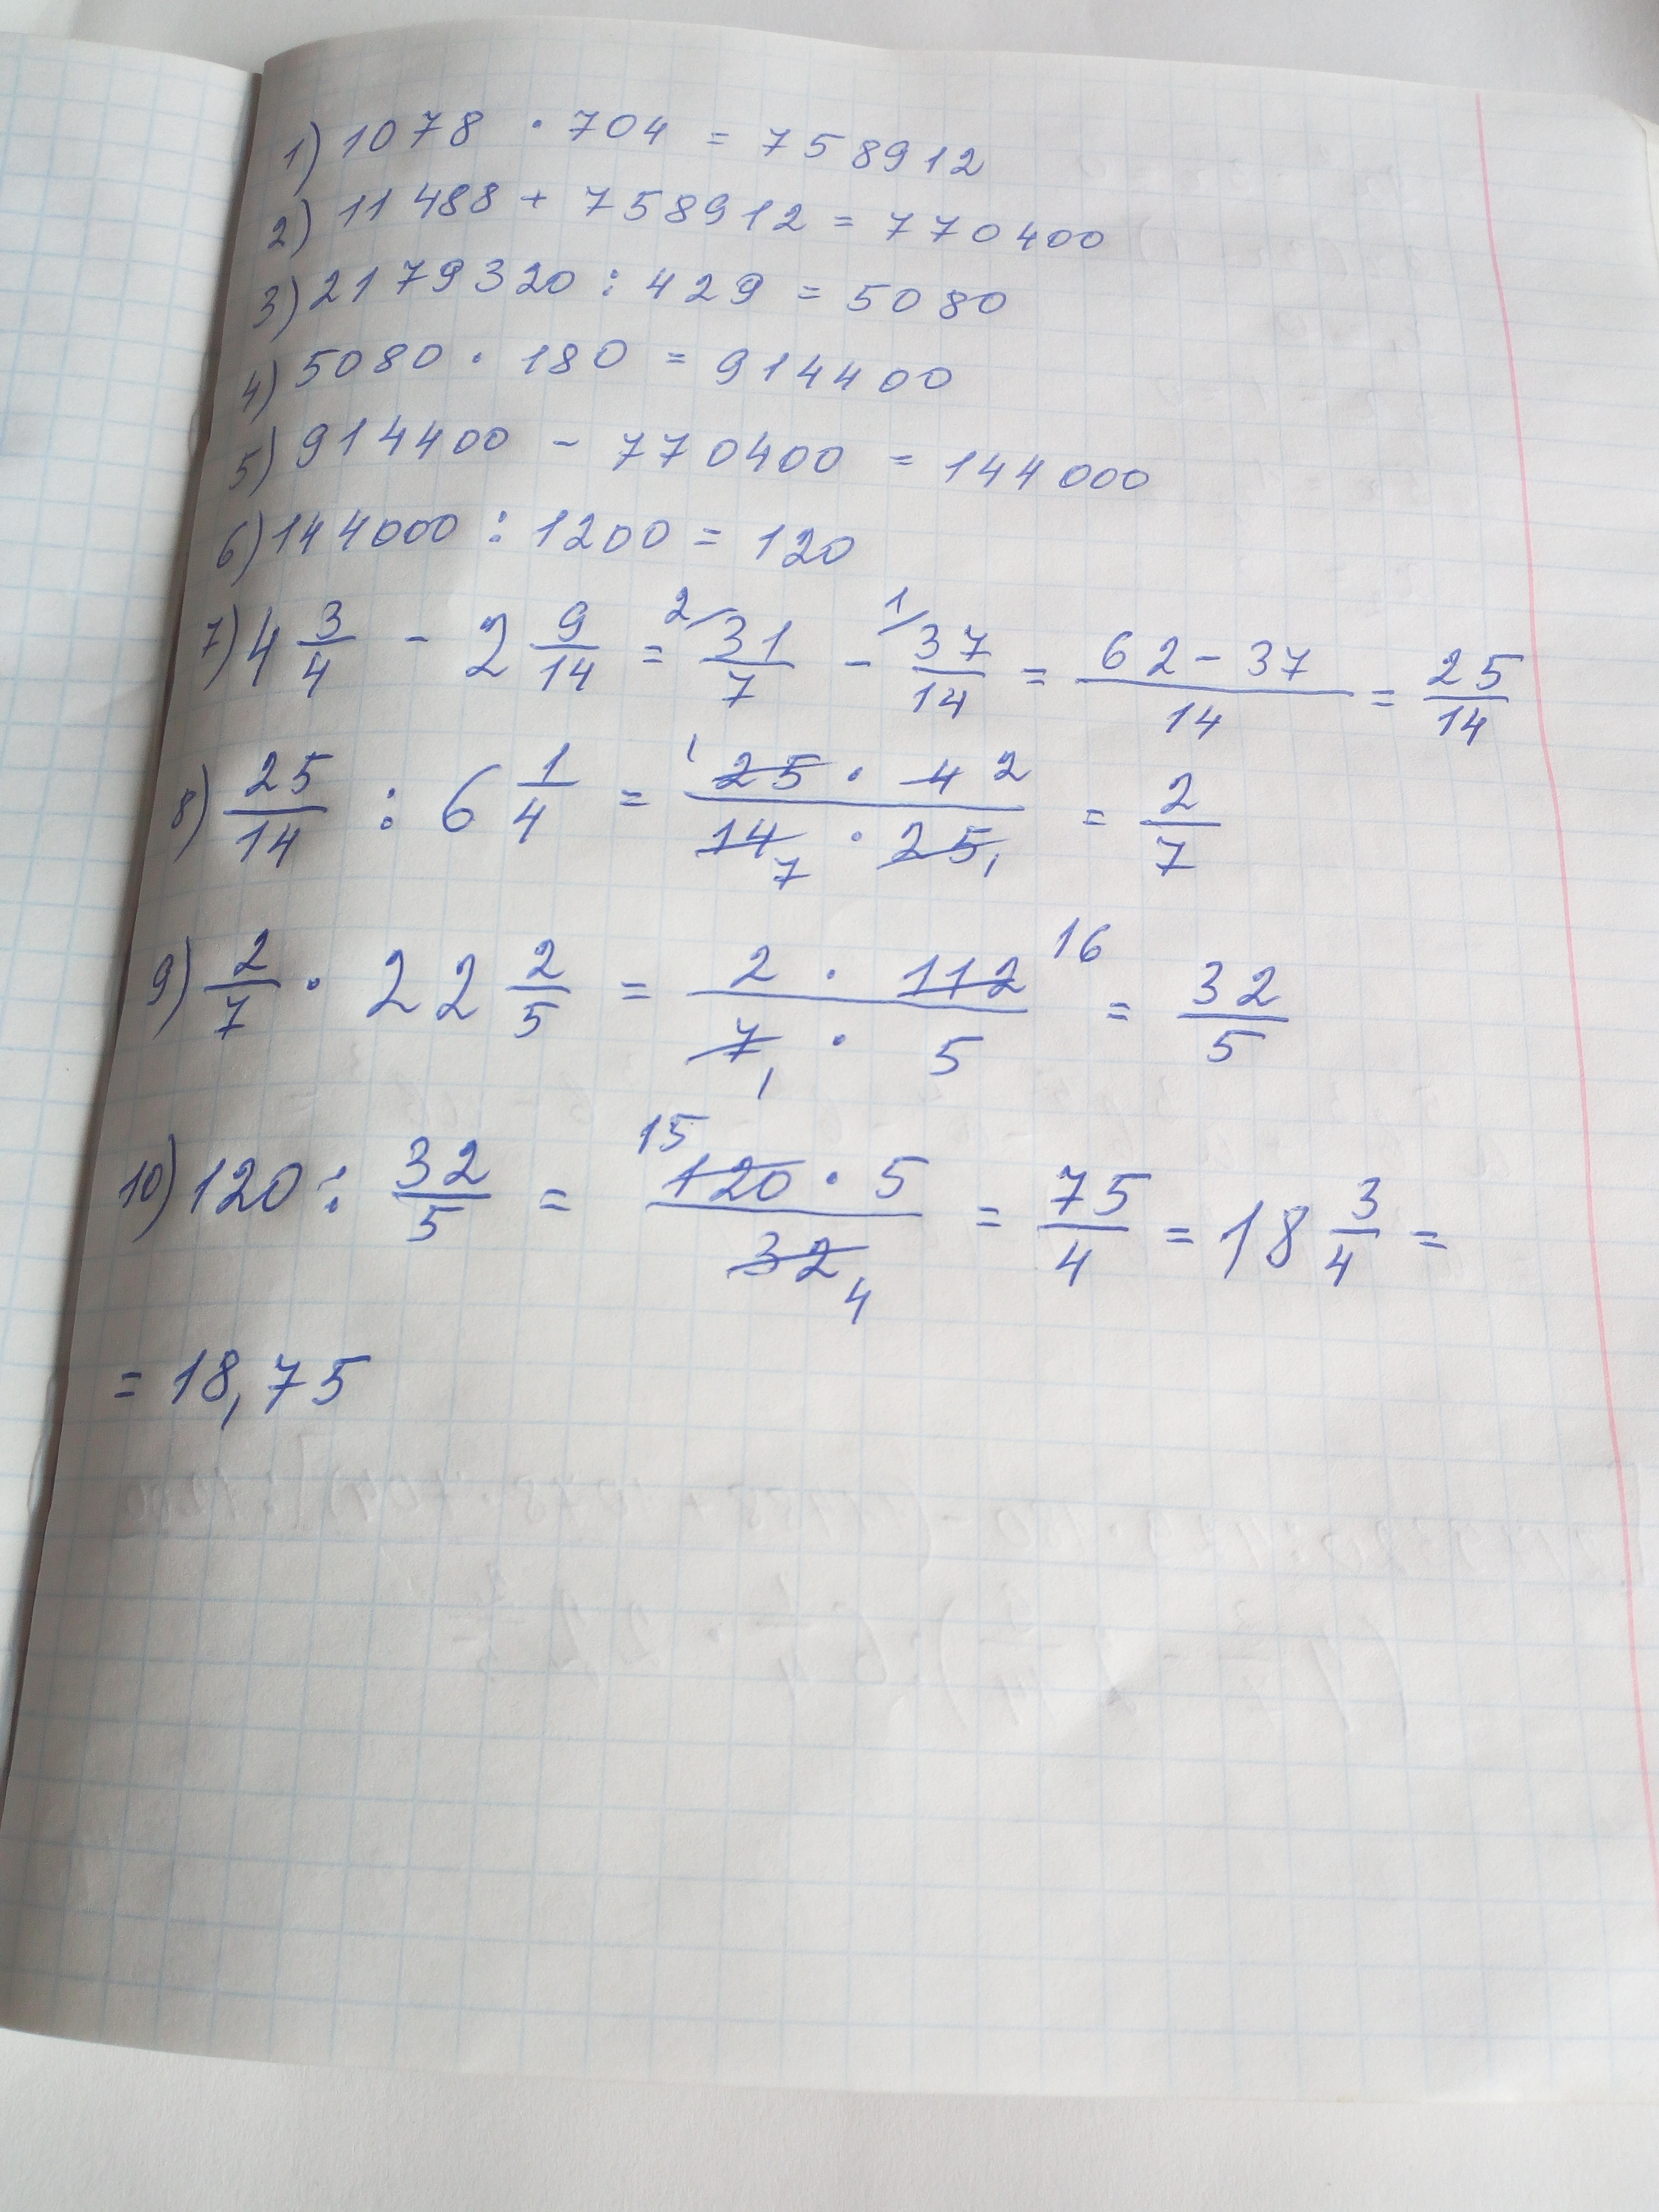 1) 1078 · 704 = 758912
2) 11488 + 758912 = 770400
3) 2179320 : 429 = 5080
4) 5080 · 180 = 914400
5) 914400 - 770400 = 144000
6) 144000 : 1200 = 120
7) 4 3/4 - 2 9/14 = 2/ 31/7 - 1/ 37/14 = (62 - 37)/14 = 25/14
8) 25/14 : 6 1/4 = (1 25 · 4 2)/(14 7 · 25 1) = 2/7
9) 2/7 · 22 2/5 = (2 · 112 16)/(7 1 · 5) = 32/5
10) 120 : 32/5 = (15 120 · 5)/(32 4) = 75/4 = 18 3/4 =
= 18,75